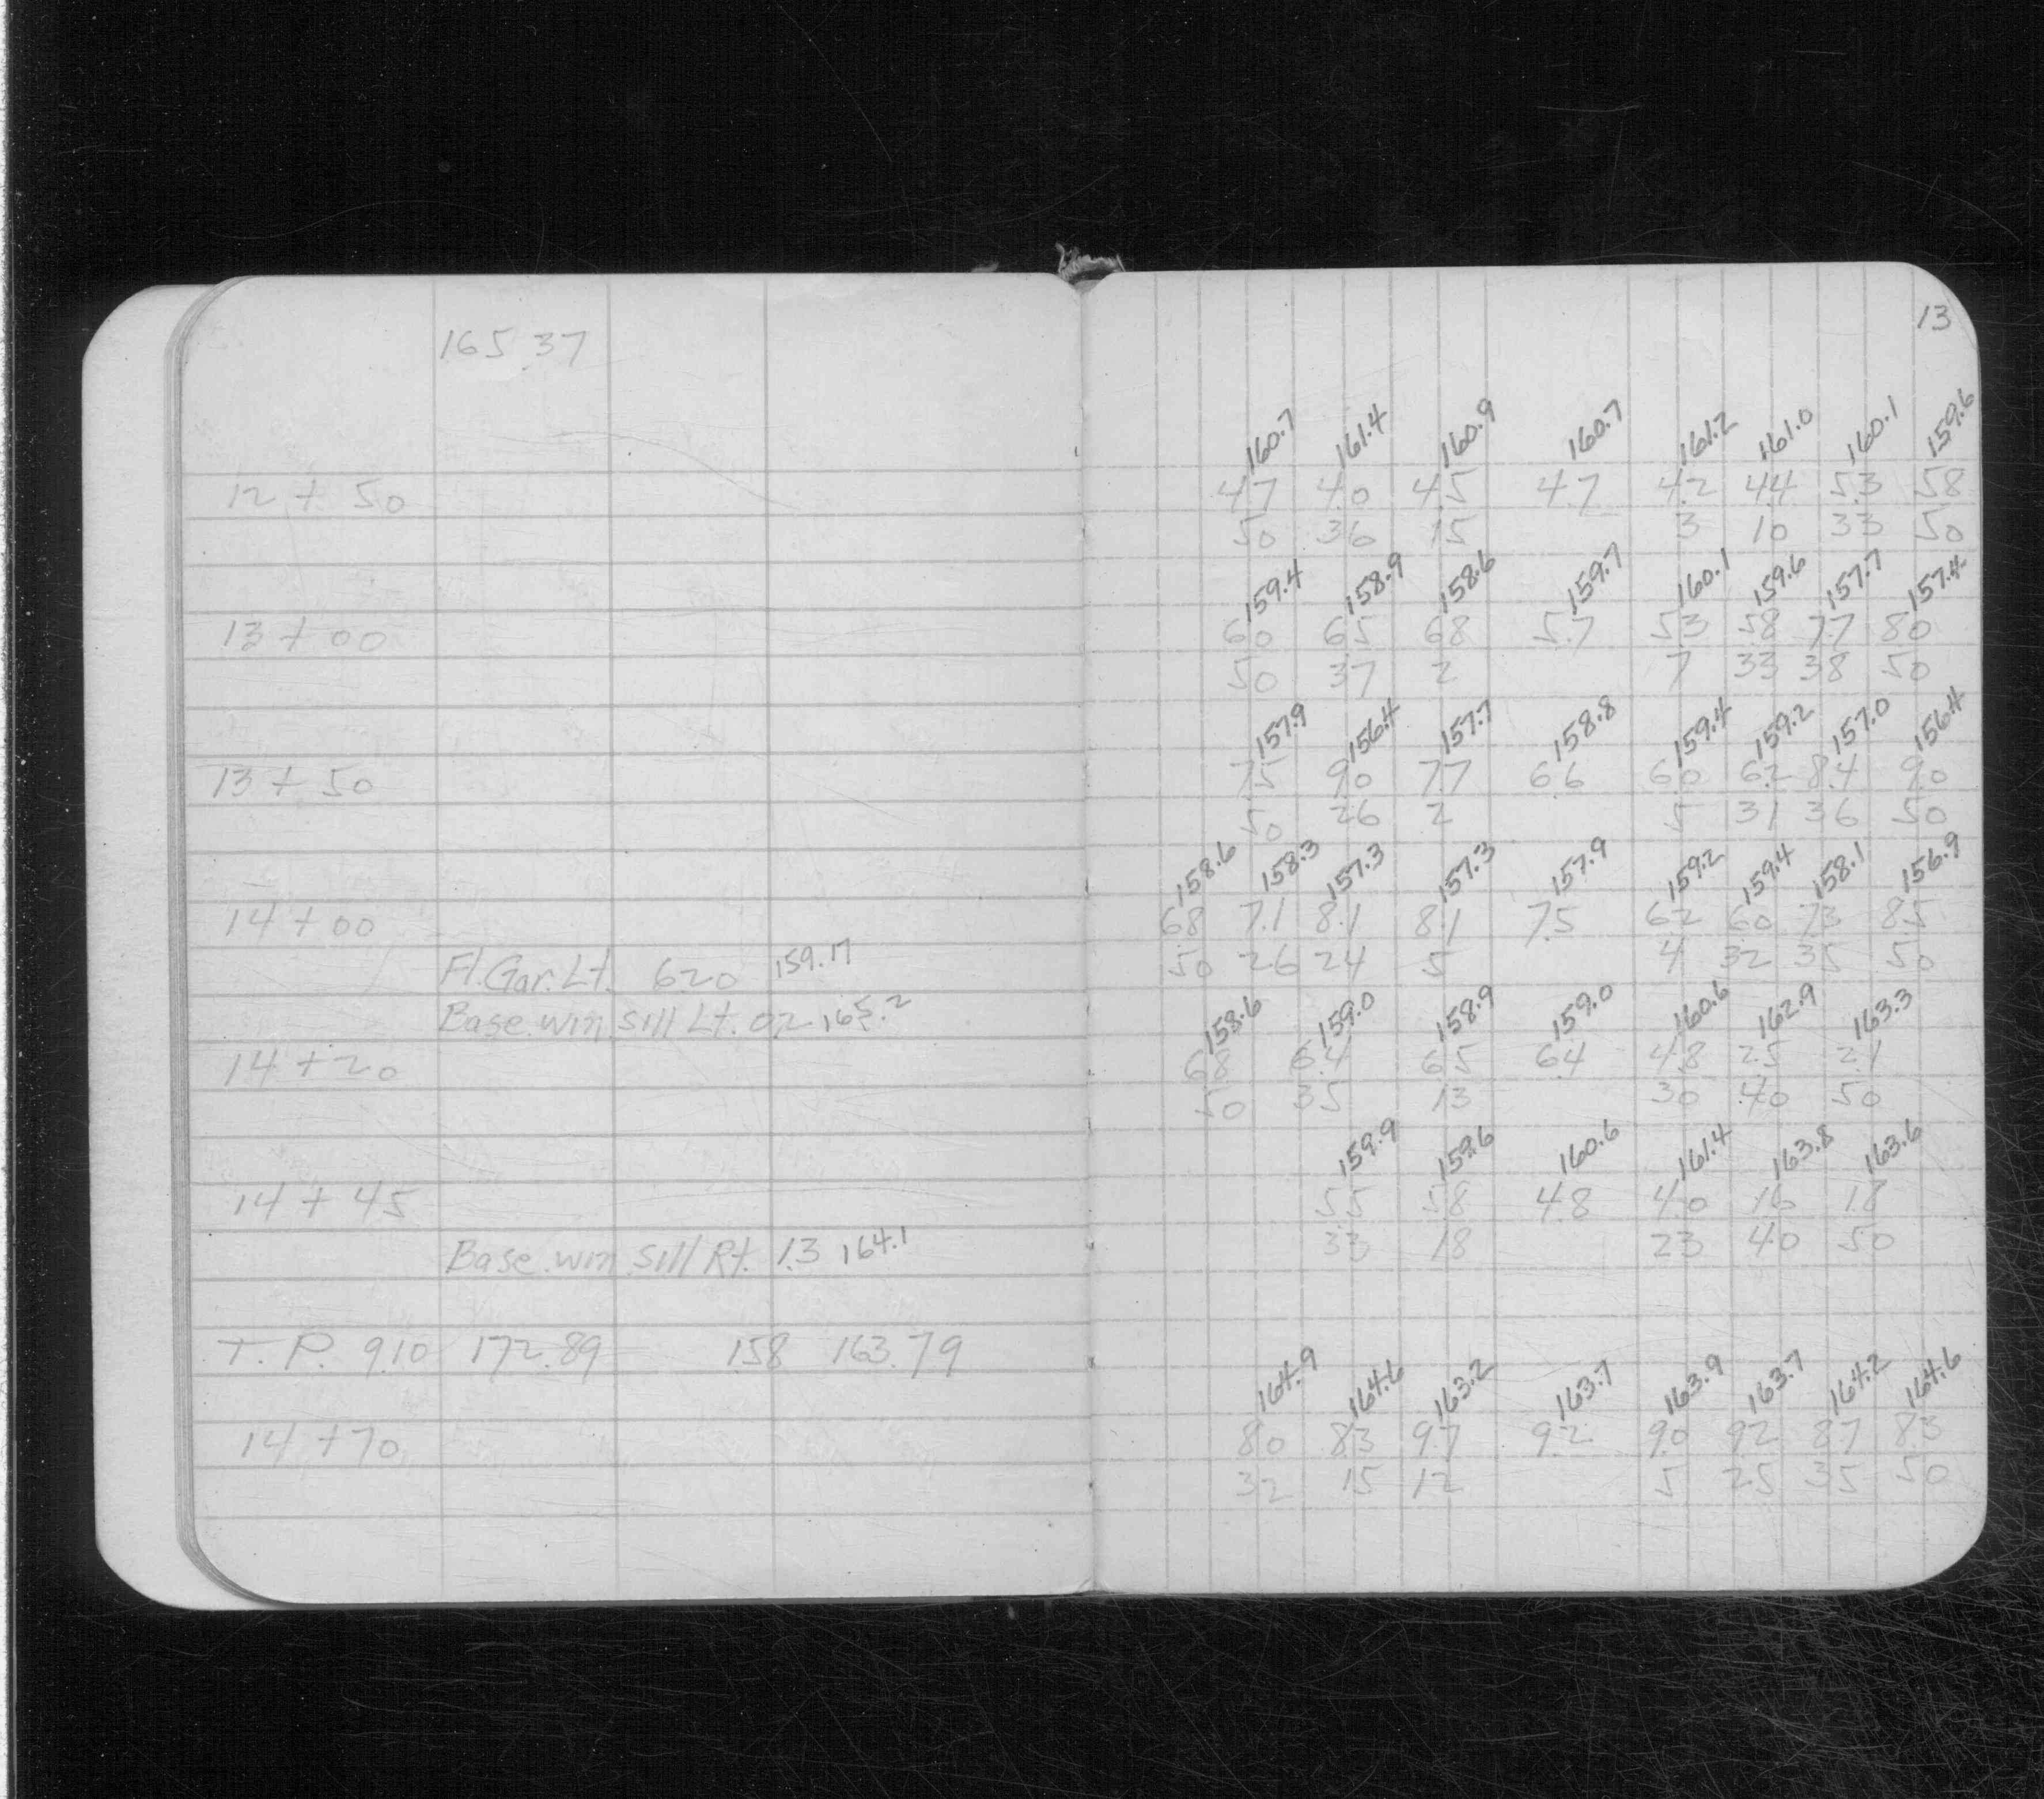 165 37
12 + 50
13 + 00
13 + 50
14 + 00
Fl. Gar. Lt. 620 159.17
Base. win sill Lt. 02 165.2
14 + 20
14 + 45
Base. win. sill Rt. 1.3 164.1
T. P. 910 172.89 158 163.79
14 + 70
13
160.7 161.4 160.9 160.7 161.2 161.0 160.1 159.6
4.7 4.0 4.5 4.7 4.2 4.4 5.3 5.8
50 36 15 3 10 33 50
159.4 158.9 158.6 159.7 160.1 159.6 157.7 157.4
6.0 6.5 6.8 5.7 5.3 5.8 7.7 8.0
50 37 2 7 33 38 50
157.9 156.4 157.7 158.8 159.4 159.2 157.0 156.4
7.5 9.0 7.7 6.6 6.0 6.2 8.4 9.0
50 26 2 5 31 36 50
158.6 158.3 157.3 157.3 157.9 159.2 159.4 158.1 156.9
6.8 7.1 8.1 8.1 7.5 6.2 6.0 7.3 8.5
50 26 24 5 4 32 35 50
158.6 159.0 158.9 159.0 160.6 162.9 163.3
6.8 6.4 6.5 6.4 4.8 2.5 2.1
50 35 13 30 40 50
159.9 159.6 160.6 161.4 163.8 163.6
5.5 5.8 4.8 4.0 1.6 1.8
33 18 23 40 50
164.9 164.6 163.2 163.7 163.9 163.7 164.2 164.6
8.0 8.3 9.7 9.2 9.0 9.2 8.7 8.3
32 15 12 5 25 35 50